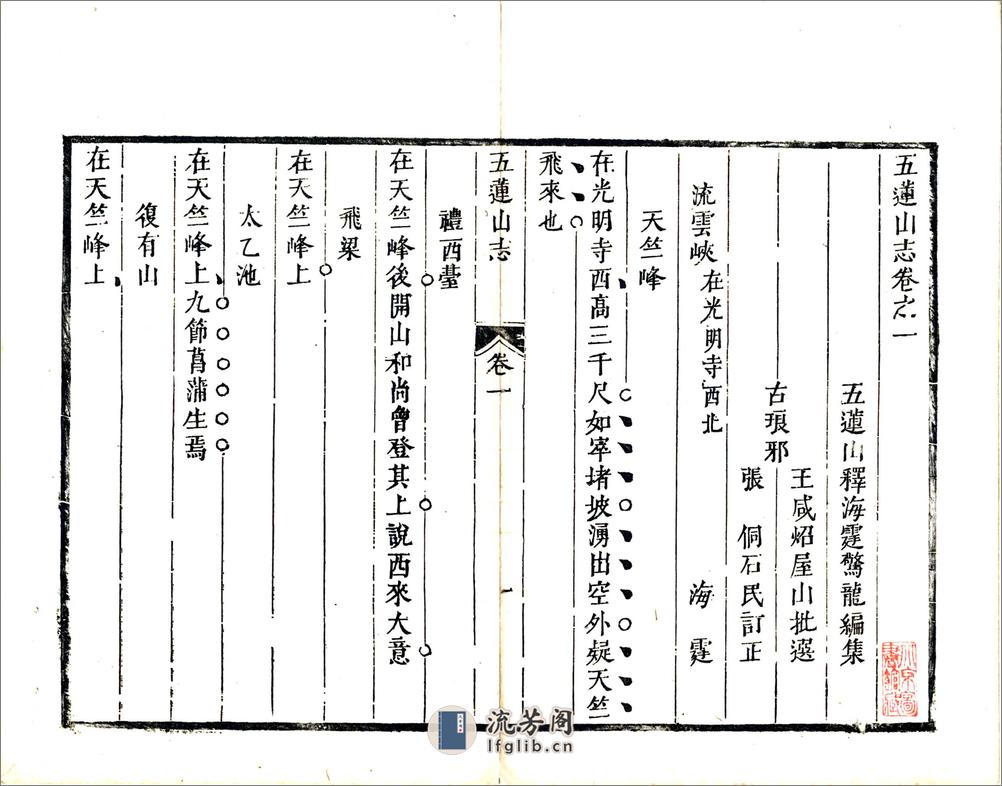 五蓮山志卷之一
五蓮山釋海霆驚龍編集
古琅邪
王咸炤屋山批選
張　侗石民訂正
流雲峽在光明寺西北　海霆
天竺峰
在光明寺西高三千尺如窣堵坡湧出空外疑天竺
飛來也
五蓮山志　卷一　一
禮西臺
在天竺峰後開山和尚曾登其上說西來大意
飛梁
在天竺峰上
太乙池
在天竺峰上九節菖蒲生焉
復有山
在天竺峰上
流芳阁
lfglib.cn